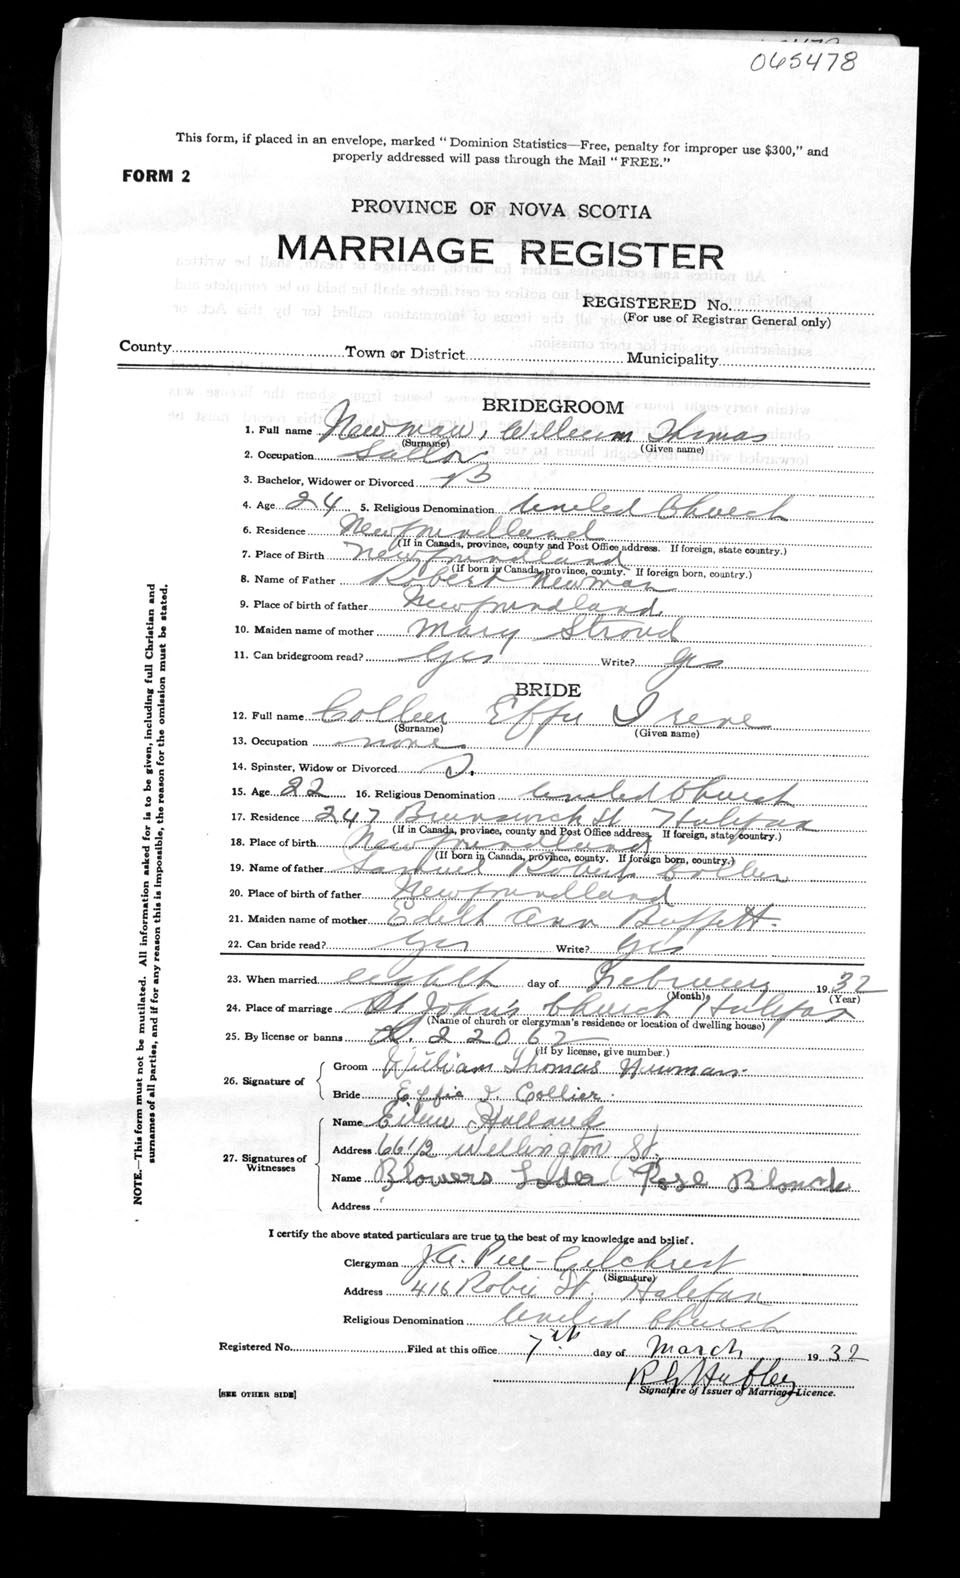 065478
This form, if placed in an envelope, marked "Dominion Statistics—Free, penalty for improper use $300," and
properly addressed will pass through the Mail "FREE."
FORM 2
PROVINCE OF NOVA SCOTIA
MARRIAGE REGISTER
REGISTERED No.
(For use of Registrar General only)
County Town or District Municipality
BRIDEGROOM
1. Full name Newman, William Thomas
(Surname) (Given name)
2. Occupation Sailor
3. Bachelor, Widower or Divorced B
4. Age 24 5. Religious Denomination United Church
6. Residence Newfoundland
(If in Canada, province, county and Post Office address. If foreign, state country.)
7. Place of Birth Newfoundland
(If born in Canada, province, county. If foreign born, country.)
8. Name of Father Robert Newman
9. Place of birth of father Newfoundland
10. Maiden name of mother Mary Stroud
11. Can bridegroom read? Yes Write? Yes
BRIDE
12. Full name Collier Effie Irene
(Surname) (Given name)
13. Occupation none
14. Spinster, Widow or Divorced S.
15. Age 22 16. Religious Denomination United Church
17. Residence 247 Brunswick St Halifax
(If in Canada, province, county and Post Office address. If foreign, state country.)
18. Place of birth Newfoundland
(If born in Canada, province, county. If foreign born, country.)
19. Name of father Samuel Robert Collier
20. Place of birth of father Newfoundland
21. Maiden name of mother Edith Ann Buffett
22. Can bride read? Yes Write? Yes
23. When married eighth day of February 1932
(Month) (Year)
24. Place of marriage St John's Church Halifax
(Name of church or clergyman's residence or location of dwelling house)
25. By license or banns 22062
(If by license, give number.)
26. Signature of
Groom William Thomas Newman
Bride Effie I. Collier
27. Signatures of Witnesses
Name Holland
Address 66 1/2 Wellington St.
Name Blowers Rose
Address
I certify the above stated particulars are true to the best of my knowledge and belief.
Clergyman J.A. Gilchrist
(Signature)
Address 416 Robie St. Halifax
Religious Denomination United Church
Registered No. Filed at this office 7th day of March 1932
R G Hubley
Signature of Issuer of Marriage Licence.
[SEE OTHER SIDE]
NOTE.—This form must not be mutilated. All information asked for is to be given, including full Christian and
surnames of all parties, and if for any reason this is impossible, the reason for the omission must be stated.